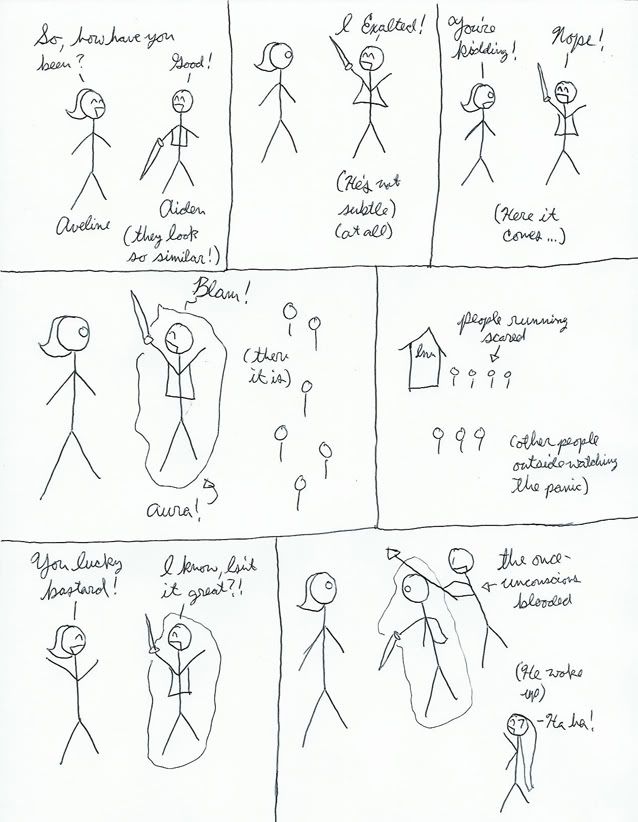 So, how have you
been?
Good!
Aveline
Aiden
(they look
so similar!)
I Exalted!
(He's not
subtle)
(at all)
You're
kidding!
Nope!
(Here it
comes...)
Blam!
(there
it is)
aura!
people running
scared
Inn
(other people
outside watching
the panic)
You lucky
bastard!
I know, Isn't
it great?!
the once-
unconscious
blooded
(He woke
up)
-Ha ha!